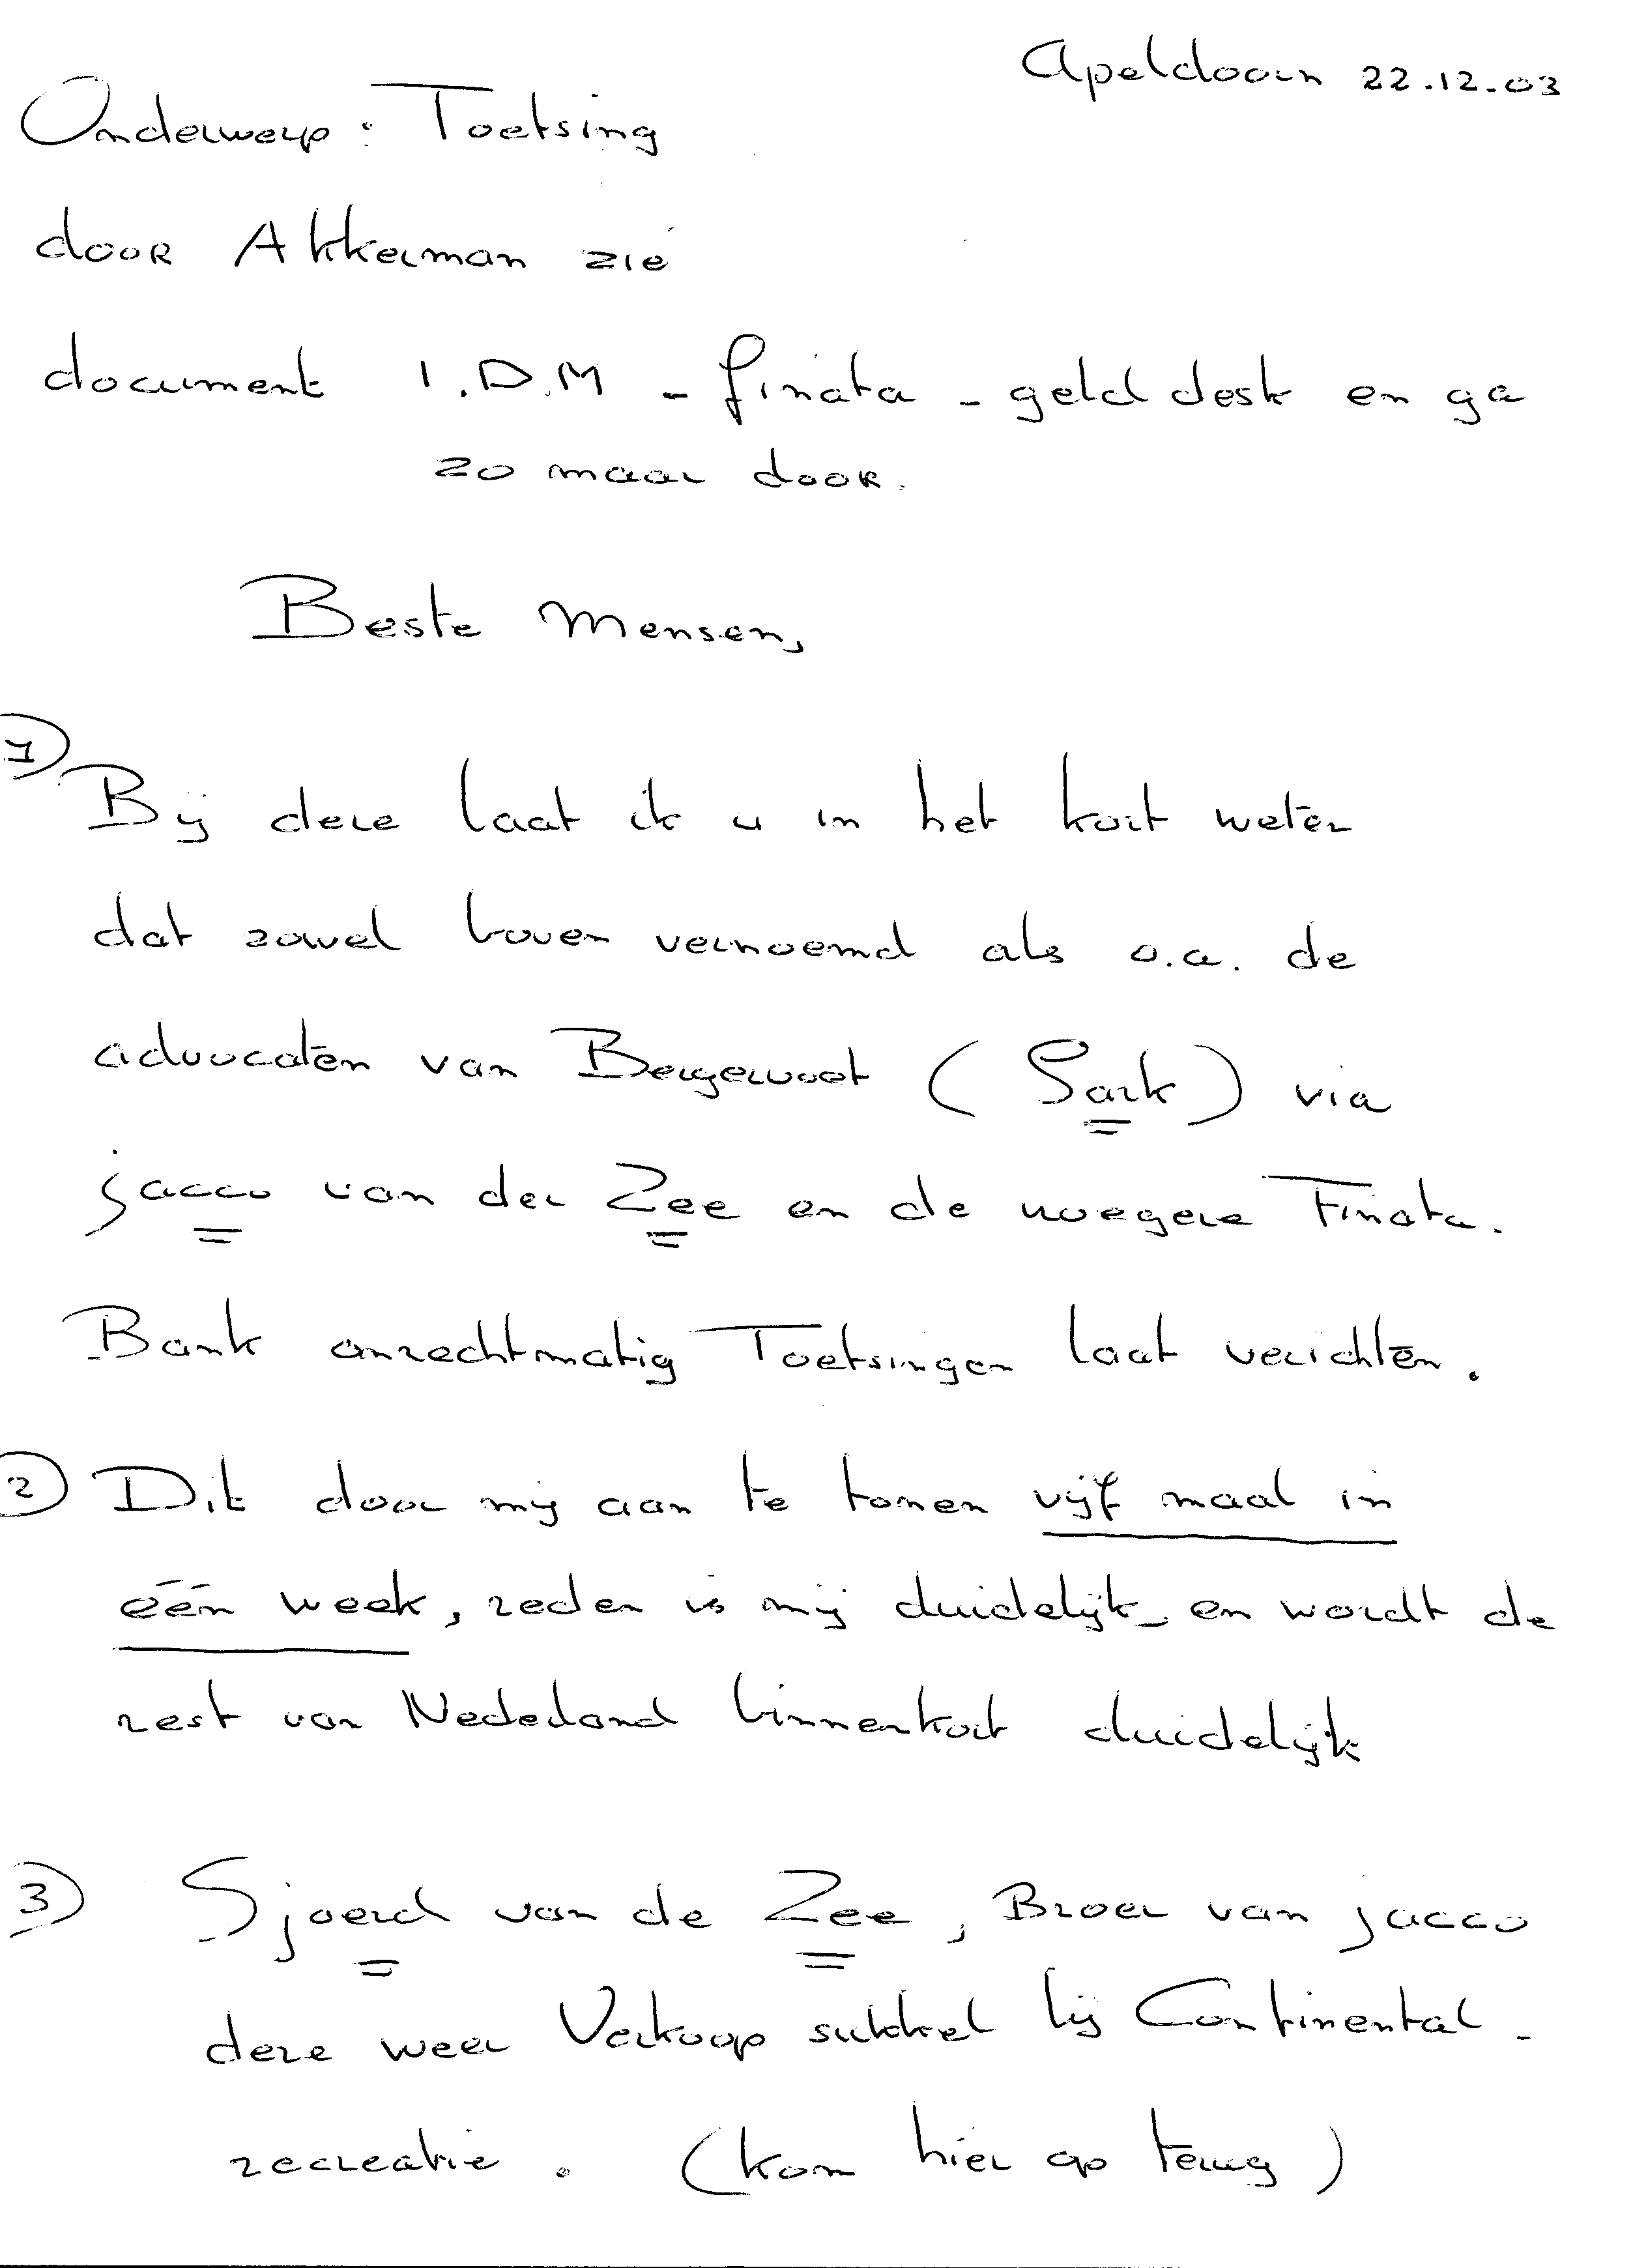 Apeldoorn 22.12.03
Onderwerp: Toetsing
door Akkerman zie
document I.D.M - finata - geld desk en ga
zo maar door.
Beste mensen,
1) Bij deze laat ik u in het kort weten
dat zowel boven vernoemd als o.a. de
advocaten van Bergervoet (Park) via
jacco van der Zee en de vroegere Finata.
Bank onrechtmatig Toetsingen laat verichten.
2) Dit door mij aan te tonen vijf maal in
één week, reden is mij duidelijk en wordt de
rest van Nederland binnenkort duidelijk
3) Sjoerd van de Zee, Broer van jacco
deze weer Verkoop sukkel bij Continental-
recreatie. (kom hier op terug)